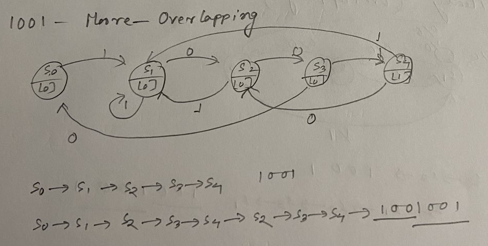 1001 - Moore - Overlapping
1
1 0 0 1
S0 S1 S2 S3 S4
[0] [0] [0] [0] [1]
1 1 0
0
S0 → S1 → S2 → S3 → S4 1001
S0 → S1 → S2 → S3 → S4 → S2 → S3 → S4 → 1001001